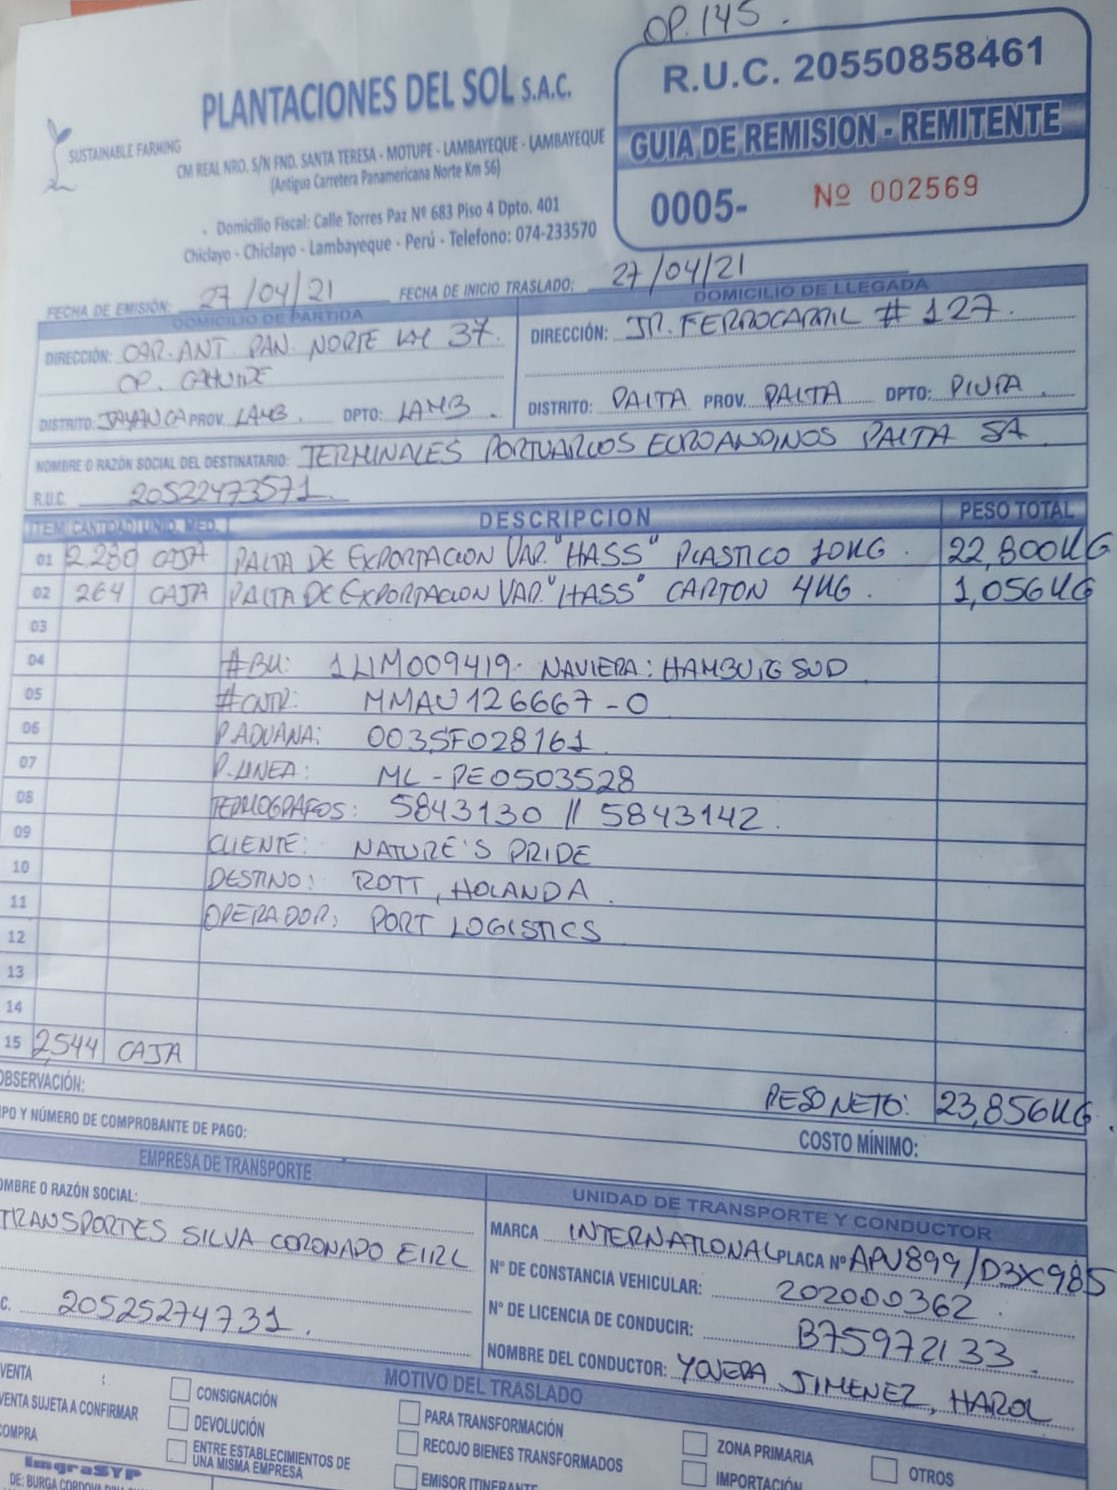 OP. 145.
R.U.C. 20550858461
PLANTACIONES DEL SOL S.A.C.
GUIA DE REMISION - REMITENTE
SUSTAINABLE FARMING
CM REAL NRO. S/N FND. SANTA TERESA - MOTUPE - LAMBAYEQUE - LAMBAYEQUE
(Antigua Carretera Panamericana Norte Km 56)
0005- Nº 002569
Domicilio Fiscal: Calle Torres Paz Nº 683 Piso 4 Dpto. 401
Chiclayo - Chiclayo - Lambayeque - Perú - Telefono: 074-233570
FECHA DE EMISIÓN: 27/04/21 FECHA DE INICIO TRASLADO: 27/04/21
DOMICILIO DE PARTIDA DOMICILIO DE LLEGADA
DIRECCIÓN: CAR. ANT. PAN. NORTE KM 37. DIRECCIÓN: JR. FERROCARRIL # 127.
OP. CAHUIDE
DISTRITO: JAYANCA PROV. LAMB. DPTO: LAMB. DISTRITO: PAITA PROV. PAITA DPTO: PIURA.
NOMBRE O RAZÓN SOCIAL DEL DESTINATARIO: TERMINALES PORTUARIOS EUROANDINOS PAITA SA
R.U.C. 20522473571.
ITEM CANTIDAD UNID. MED. DESCRIPCION PESO TOTAL
01 2,280 CAJA PALTA DE EXPORTACION VAR. "HASS" PLASTICO 10KG. 22,800KG
02 264 CAJA PALTA DE EXPORTACION VAR. "HASS" CARTON 4KG. 1,056KG
03
04 #BK: 1LIM009419. NAVIERA: HAMBURG SUD
05 #CNTR: MMAU126667-0
06 P.ADUANA: 003SF028161
07 P.LINEA: ML-PE0503528
08 TERMOGRAFOS: 5843130 // 5843142.
09 CLIENTE: NATURE'S PRIDE
10 DESTINO: ROTT, HOLANDA.
11 OPERADOR: PORT LOGISTICS
12
13
14
15 2,544 CAJA
OBSERVACIÓN: PESO NETO: 23,856KG.
IPO Y NÚMERO DE COMPROBANTE DE PAGO: COSTO MÍNIMO:
EMPRESA DE TRANSPORTE UNIDAD DE TRANSPORTE Y CONDUCTOR
OMBRE O RAZÓN SOCIAL: MARCA INTERNATIONAL PLACA Nº APU899/D3X985
TRANSPORTES SILVA CORONADO EIRL Nº DE CONSTANCIA VEHICULAR: 202000362
C. 20525274731. Nº DE LICENCIA DE CONDUCIR: B75972133.
NOMBRE DEL CONDUCTOR: YOVERA JIMENEZ, HAROL
MOTIVO DEL TRASLADO
VENTA CONSIGNACIÓN PARA TRANSFORMACIÓN ZONA PRIMARIA
VENTA SUJETA A CONFIRMAR DEVOLUCIÓN RECOJO BIENES TRANSFORMADOS IMPORTACIÓN OTROS
COMPRA ENTRE ESTABLECIMIENTOS DE UNA MISMA EMPRESA EMISOR ITINERANTE
ImgraSYP
DE: BURGA CORDOVA